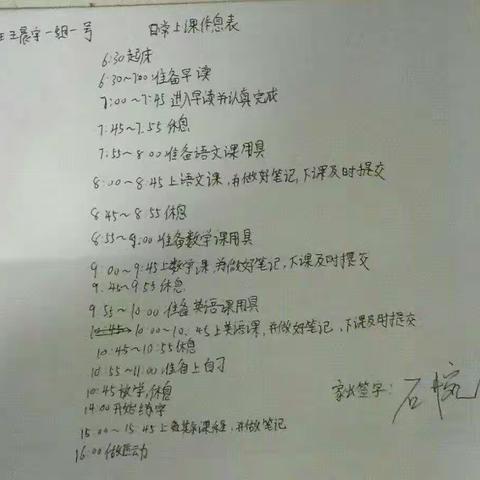 王晨宇一组一号 日常上课作息表
6:30起床
6:30~7:00准备早读
7:00~7:45 进入早读并认真完成
7:45~7:55 休息
7:55~8:00准备语文课用具
8:00~8:45上语文课,并做好笔记,下课及时提交
8:45~8:55休息
8:55~9:00准备数学课用具
9:00~9:45上数学课 并做好笔记,下课及时提交
9:45~9:55休息
9:55~10:00准备英语课用具
10:45 10:00~10:45上英语课,并做好笔记,下课及时提交
10:45~10:55休息
10:55~11:00准备上自习
10:45放学,休息
家长签字:
14:00开始练字
15:00~15:45上课程,并做笔记
16:00做运动